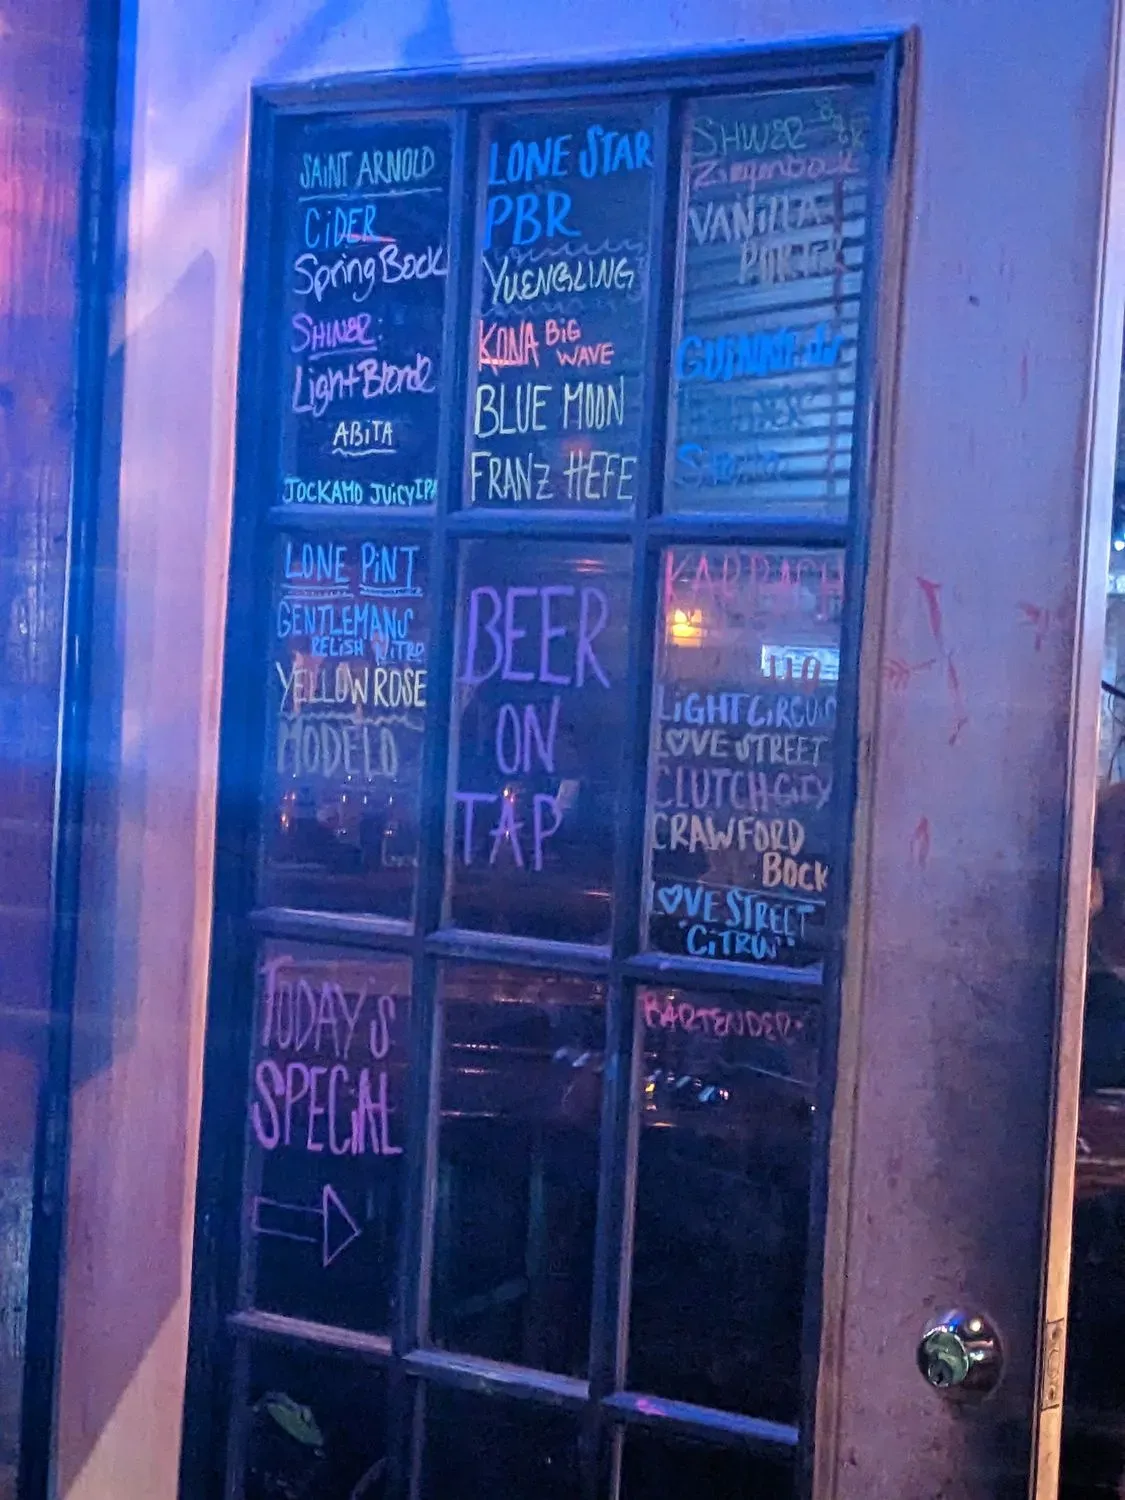 SAINT ARNOLD
CIDER
Spring Bock
SHINER:
Light Blonde
ABITA
JOCKAMO JUICY IPA
LONE STAR
PBR
YUENGLING
KONA BIG
WAVE
BLUE MOON
FRANZ HEFE
SHINER BOCK
Ziegenbock
VANILLA
PORTER
LONE PINT
GENTLEMANS
RELISH NITRO
YELLOW ROSE
MODELO
BEER
ON
TAP
KARBACH
LIGHT CIRCUS
L♡VE STREET
CLUTCH CITY
CRAWFORD
BOCK
L♡VE STREET
"CITRUS"
TODAY'S
SPECIAL
BARTENDER: